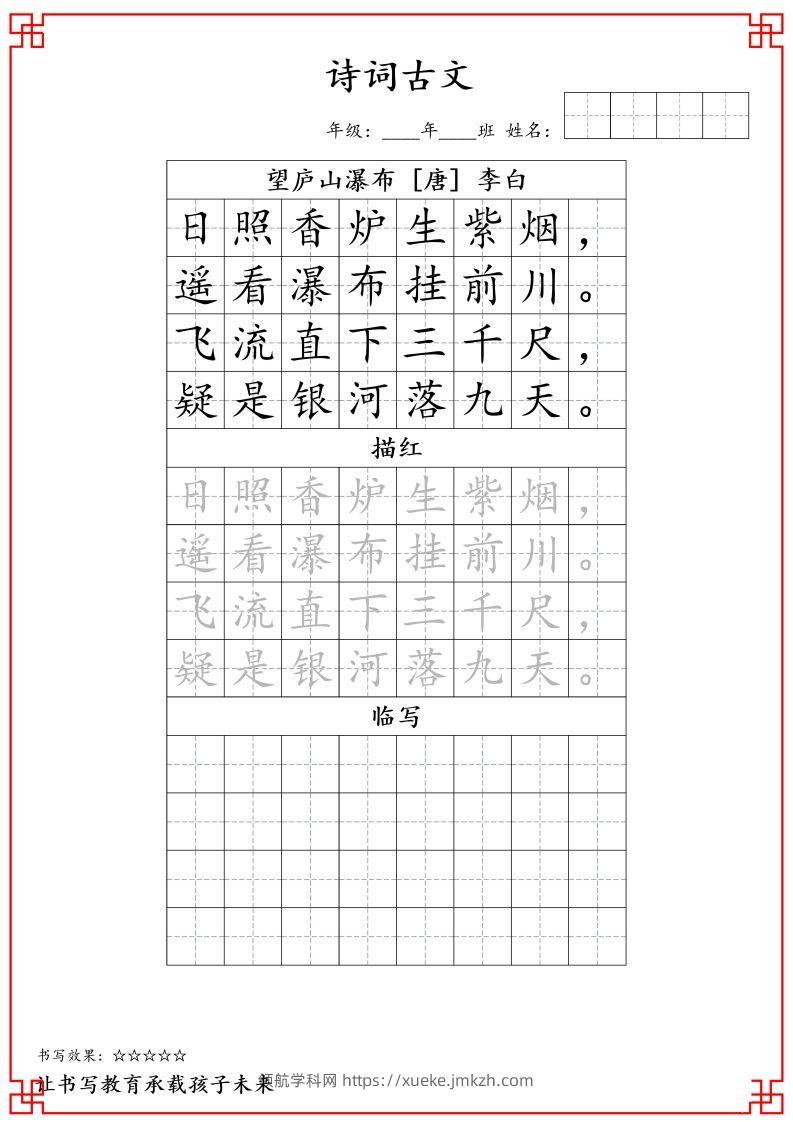 诗词古文
年级：____年____班 姓名：
望庐山瀑布［唐］李白
日照香炉生紫烟，
遥看瀑布挂前川。
飞流直下三千尺，
疑是银河落九天。
描红
日照香炉生紫烟，
遥看瀑布挂前川。
飞流直下三千尺，
疑是银河落九天。
临写
书写效果：☆☆☆☆☆
让书写教育承载孩子未来
领航学科网 https://xueke.jmkzh.com